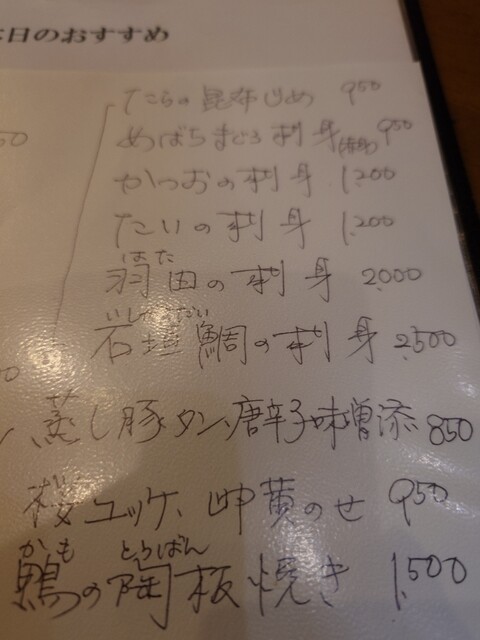 日のおすすめ
たらの昆布じめ 950
めばちまぐろ刺身 950
かつおの刺身 1.200
たいの刺身 1.200
はた
羽田の刺身 2.000
いしがきだい
石垣鯛の刺身 2.500
蒸し豚タン、唐辛子味噌添 850
桜ユッケ、卵黄のせ 950
かも とうばん
鴨の陶板焼き 1.500